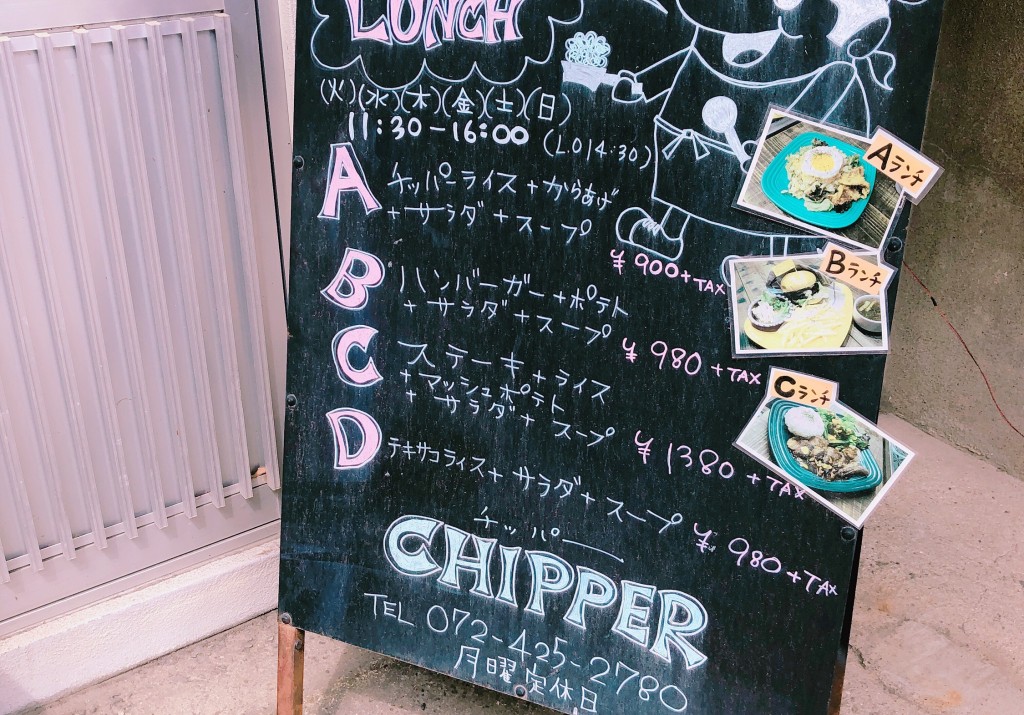 LUNCH
(火)(水)(木)(金)(土)(日)
11:30-16:00 (L.O14:30)
A チッパーライス+からあげ
+サラダ+スープ
¥900+TAX
B ハンバーガー+ポテト
+サラダ+スープ
¥980+TAX
C ステーキ+ライス
+マッシュポテト
+サラダ+スープ
¥1380+TAX
D テキサコライス+サラダ+スープ
¥980+TAX
チッパー
CHIPPER
TEL 072-425-2780
月曜定休日
Aランチ
Bランチ
Cランチ